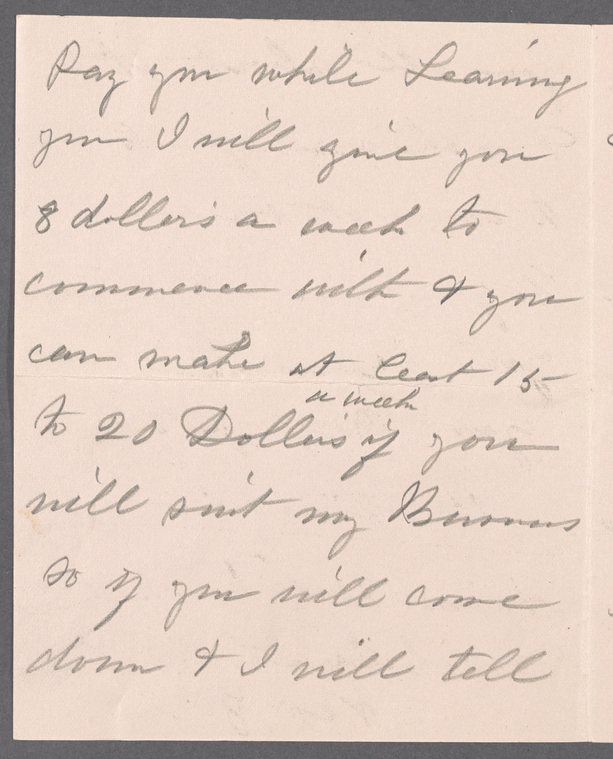 Pay you while Learning
you I will give you
8 dollers a week to
commence with & you
can make at least 15
a week
to 20 Dollers if you
will suit my Buisness
so if you will come
down & I will tell